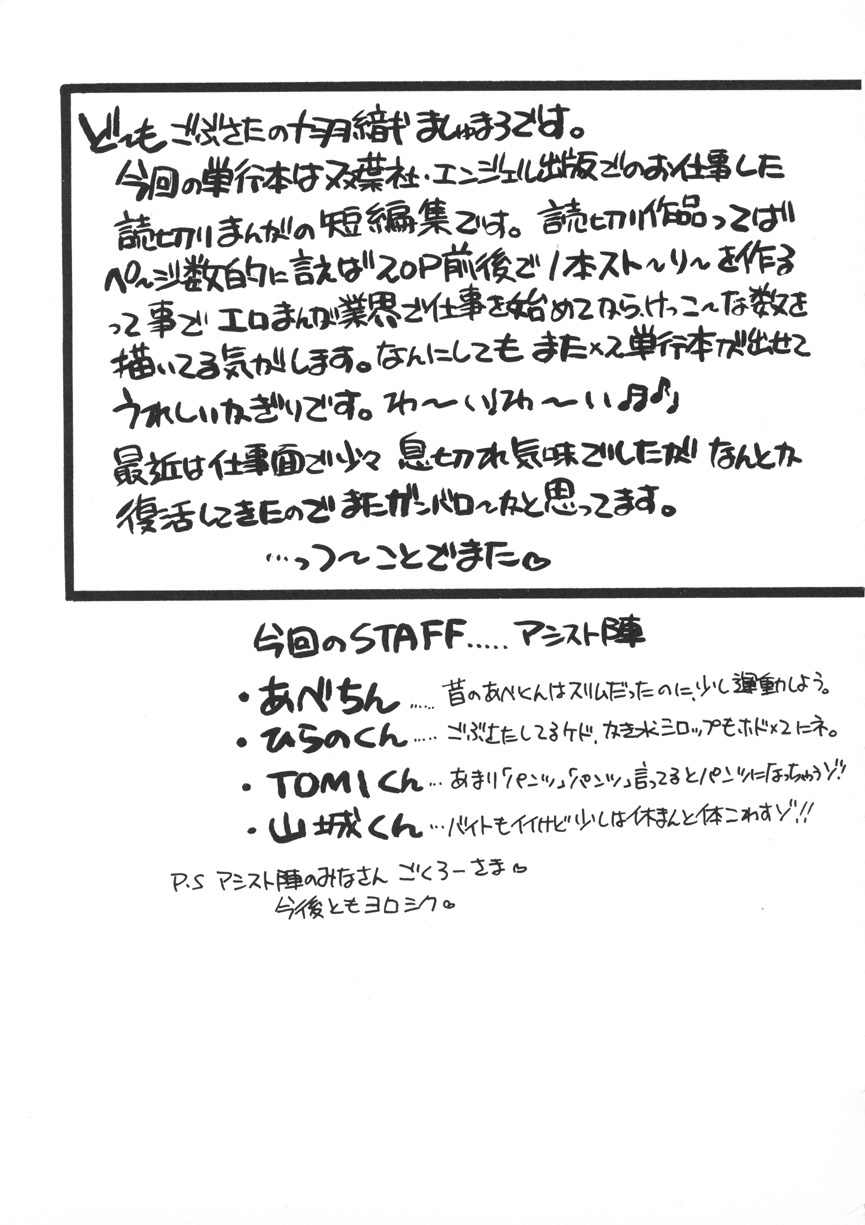 ど〜も ごぶさたの ましゅまろです。
今回の単行本は双葉社・エンジェル出版でのお仕事した
読切りまんがの短編集です。読切り作品ってば
ペ〜ジ数的に言えば20P前後で1本スト〜リ〜を作る
って事で エロまんが業界で仕事を始めてから、けっこ〜な数を
描いてる気がします。なんにしても また×2単行本が出せて
うれしいかぎりです。わ〜い♪わ〜い♫♪
最近は仕事面で少々 息切れ気味でしたが なんとか
復活してきたのでまたガンバロ〜かと思ってます。
…っつ〜ことでまた♡
今回のSTAFF..... アシスト陣
・あべちん...... 昔のあべくんはスリムだったのに、少し運動しよう。
・ひらのくん..... ごぶさたしてるケド、かき氷シロップもホド×2にネ。
・TOMIくん... あまり「パンツ」「パンツ」言ってるとパンツになっちゃうゾ!!
・山城くん...バイトもイイけど少しは休まんと体こわすゾ!!
P.S アシスト陣のみなさん ごくろーさま♡
今後ともヨロシク♡